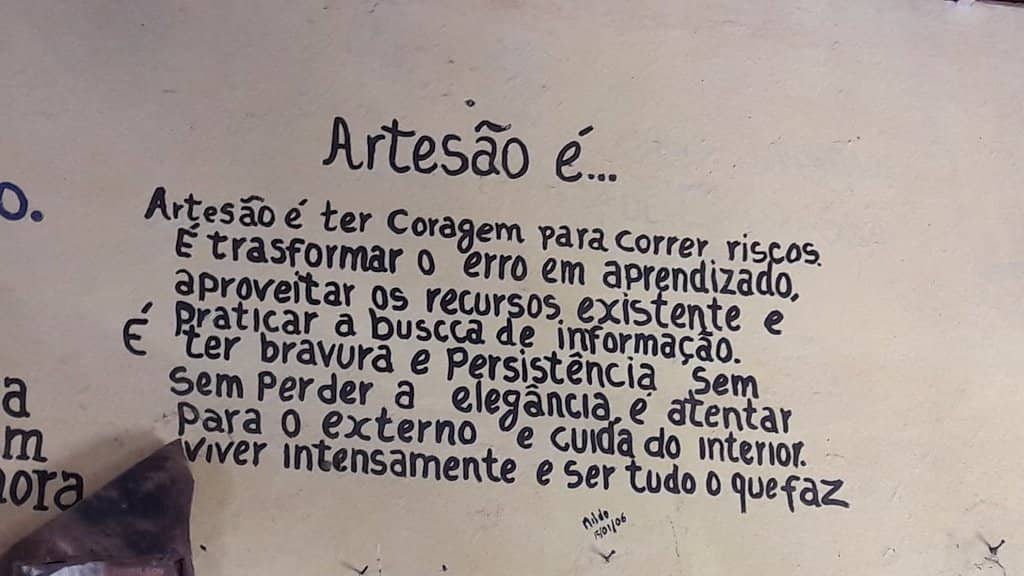 Artesão é...
o.
Artesão é ter Coragem para correr riscos.
É trasformar o erro em aprendizado,
aproveitar os recursos existente e
Praticar a buscca de informação.
É ter bravura e Persistência Sem
Sem Perder a elegância, é atentar
Para o externo e cuida do interior.
viver intensamente e ser tudo o que faz
a
m
hora
15/01/06